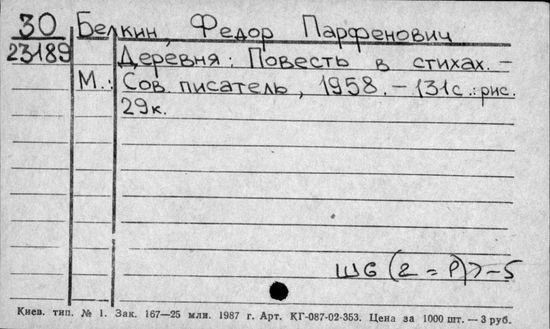 30 Белкин, Федор Парфенович
23189 Деревня: Повесть в стихах. –
М.: Сов. писатель, 1958. – 131с.: рис.
29к.
Ш6 (2 = Р) 7 – 5
Киев. тип. № 1. Зак. 167—25 млн. 1987 г. Арт. КГ-087-02-353. Цена за 1000 шт. — 3 руб.